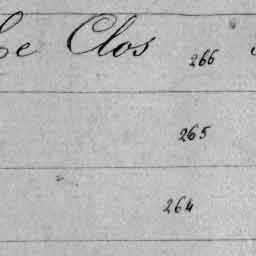 Le Clos 266
265
264